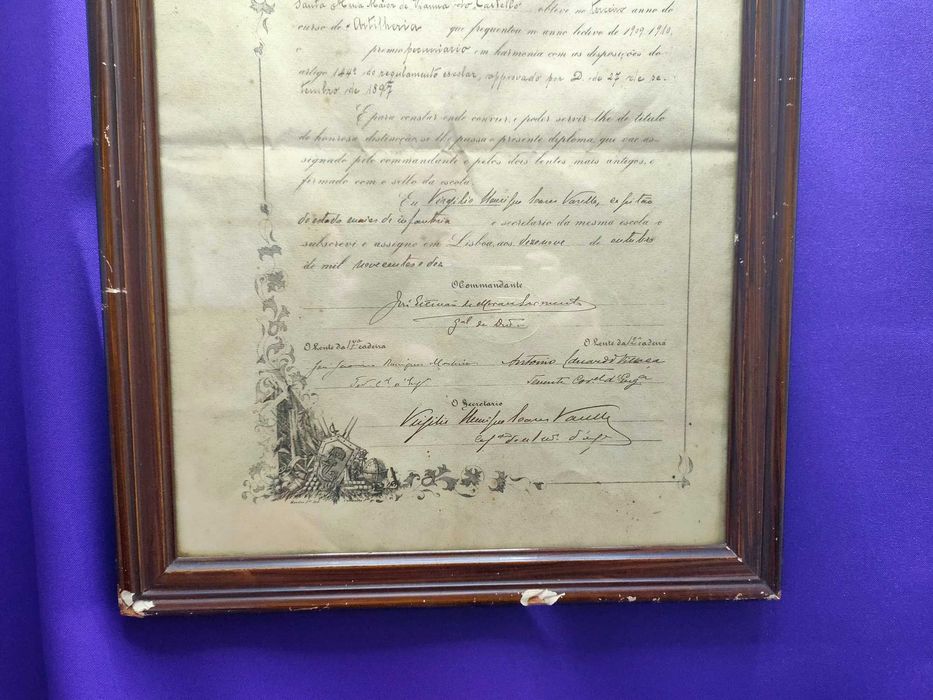 Santa Maria Maior de Vianna do Castello obteve no terceiro anno do
curso de Artilheria que frequentou no anno lectivo de 1909-1910,
o premio pecuniario em harmonia com as disposições do
artigo 144º do regulamento escolar, approvado por D. de 27 de se-
tembro de 1897
E para constar onde convier, e poder servir-lhe de titulo
de honrosa distincção, se lhe passa o presente diploma, que vae as-
signado pelo commandante e pelos dois lentes mais antigos, e
firmado com o sello da escola.
Eu Virgilio Henrique Soares Varella, capitão
do estado maior de infantaria e secretario da mesma escola o
subscrevo e assigno em Lisboa, aos dezenove de outubro
de mil novecentos e dez
O Commandante
José Estevão de Moraes Sarmento
Gal de Divão
O Lente da 17ª cadeira O Lente da 12ª cadeira
Rodrigues Monteiro Antonio Eduardo Villaça
Tenente Corel d'Engª
O Secretario
Virgilio Henrique Soares Varella